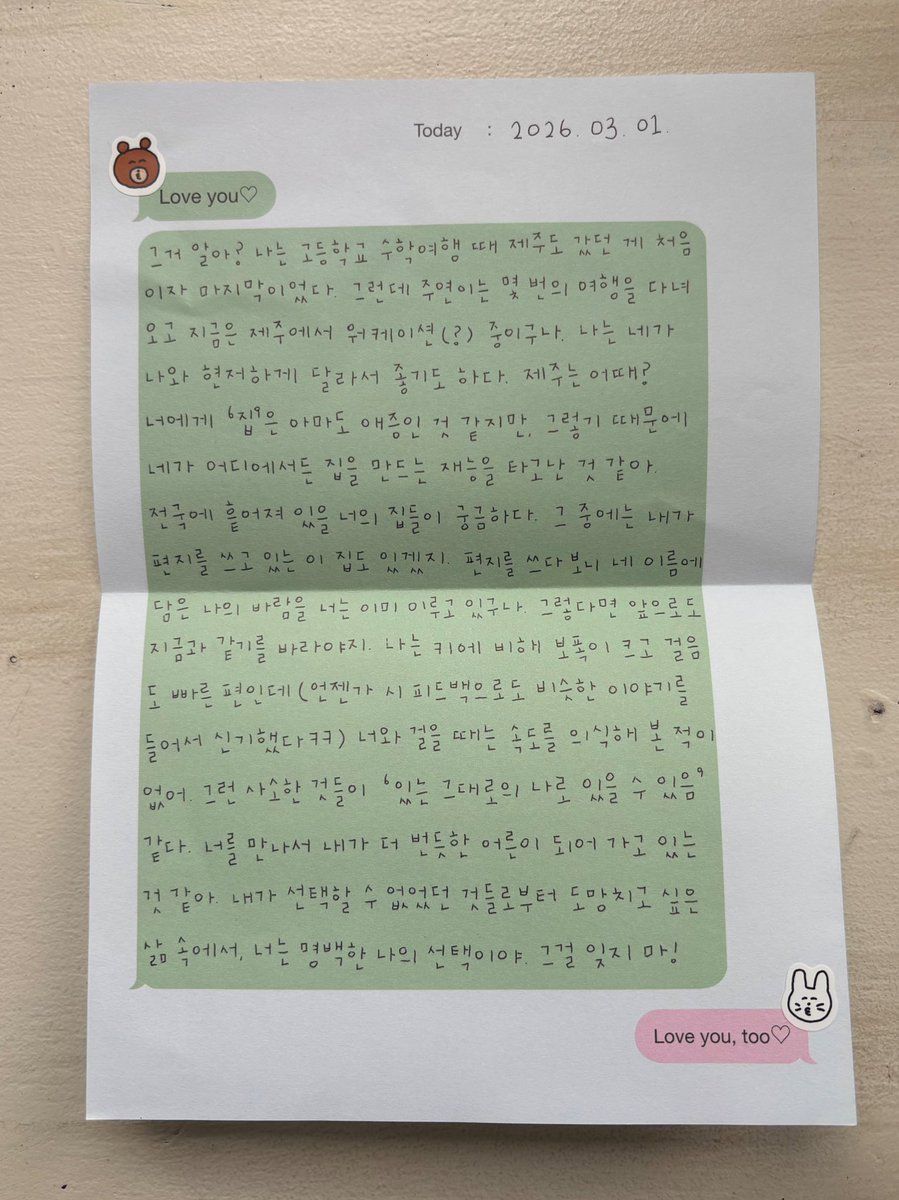 Today : 2026. 03. 01.
Love you♡
그거 알아? 나는 고등학교 수학여행 때 제주도 갔던 게 처음
이자 마지막이었다. 그런데 주연이는 몇 번의 여행을 다녀
오고 지금은 제주에서 워케이션(?) 중이구나. 나는 네가
나와 현저하게 달라서 좋기도 하다. 제주는 어때?
너에게 '집'은 아마도 애증인 것 같지만, 그렇기 때문에
네가 어디에서든 집을 만드는 재능을 타고난 것 같아.
전국에 흩어져 있을 너의 집들이 궁금하다. 그 중에는 내가
편지를 쓰고 있는 이 집도 있겠지. 편지를 쓰다보니 네 이름에
담은 나의 바람을 너는 이미 이루고 있구나. 그렇다면 앞으로도
지금과 같기를 바라야지. 나는 키에 비해 보폭이 크고 걸음
도 빠른 편인데 (언젠가 시 피드백으로도 비슷한 이야기를
들어서 신기했다ㅋㅋ) 너와 걸을 때는 속도를 의식해 본 적이
없어. 그런 사소한 것들이 '있는 그대로의 나로 있을 수 있음'
같다. 너를 만나서 내가 더 번듯한 어른이 되어 가고 있는
것 같아. 내가 선택할 수 없었던 것들로부터 도망치고 싶은
삶 속에서, 너는 명백한 나의 선택이야. 그걸 잊지 마!
Love you, too♡